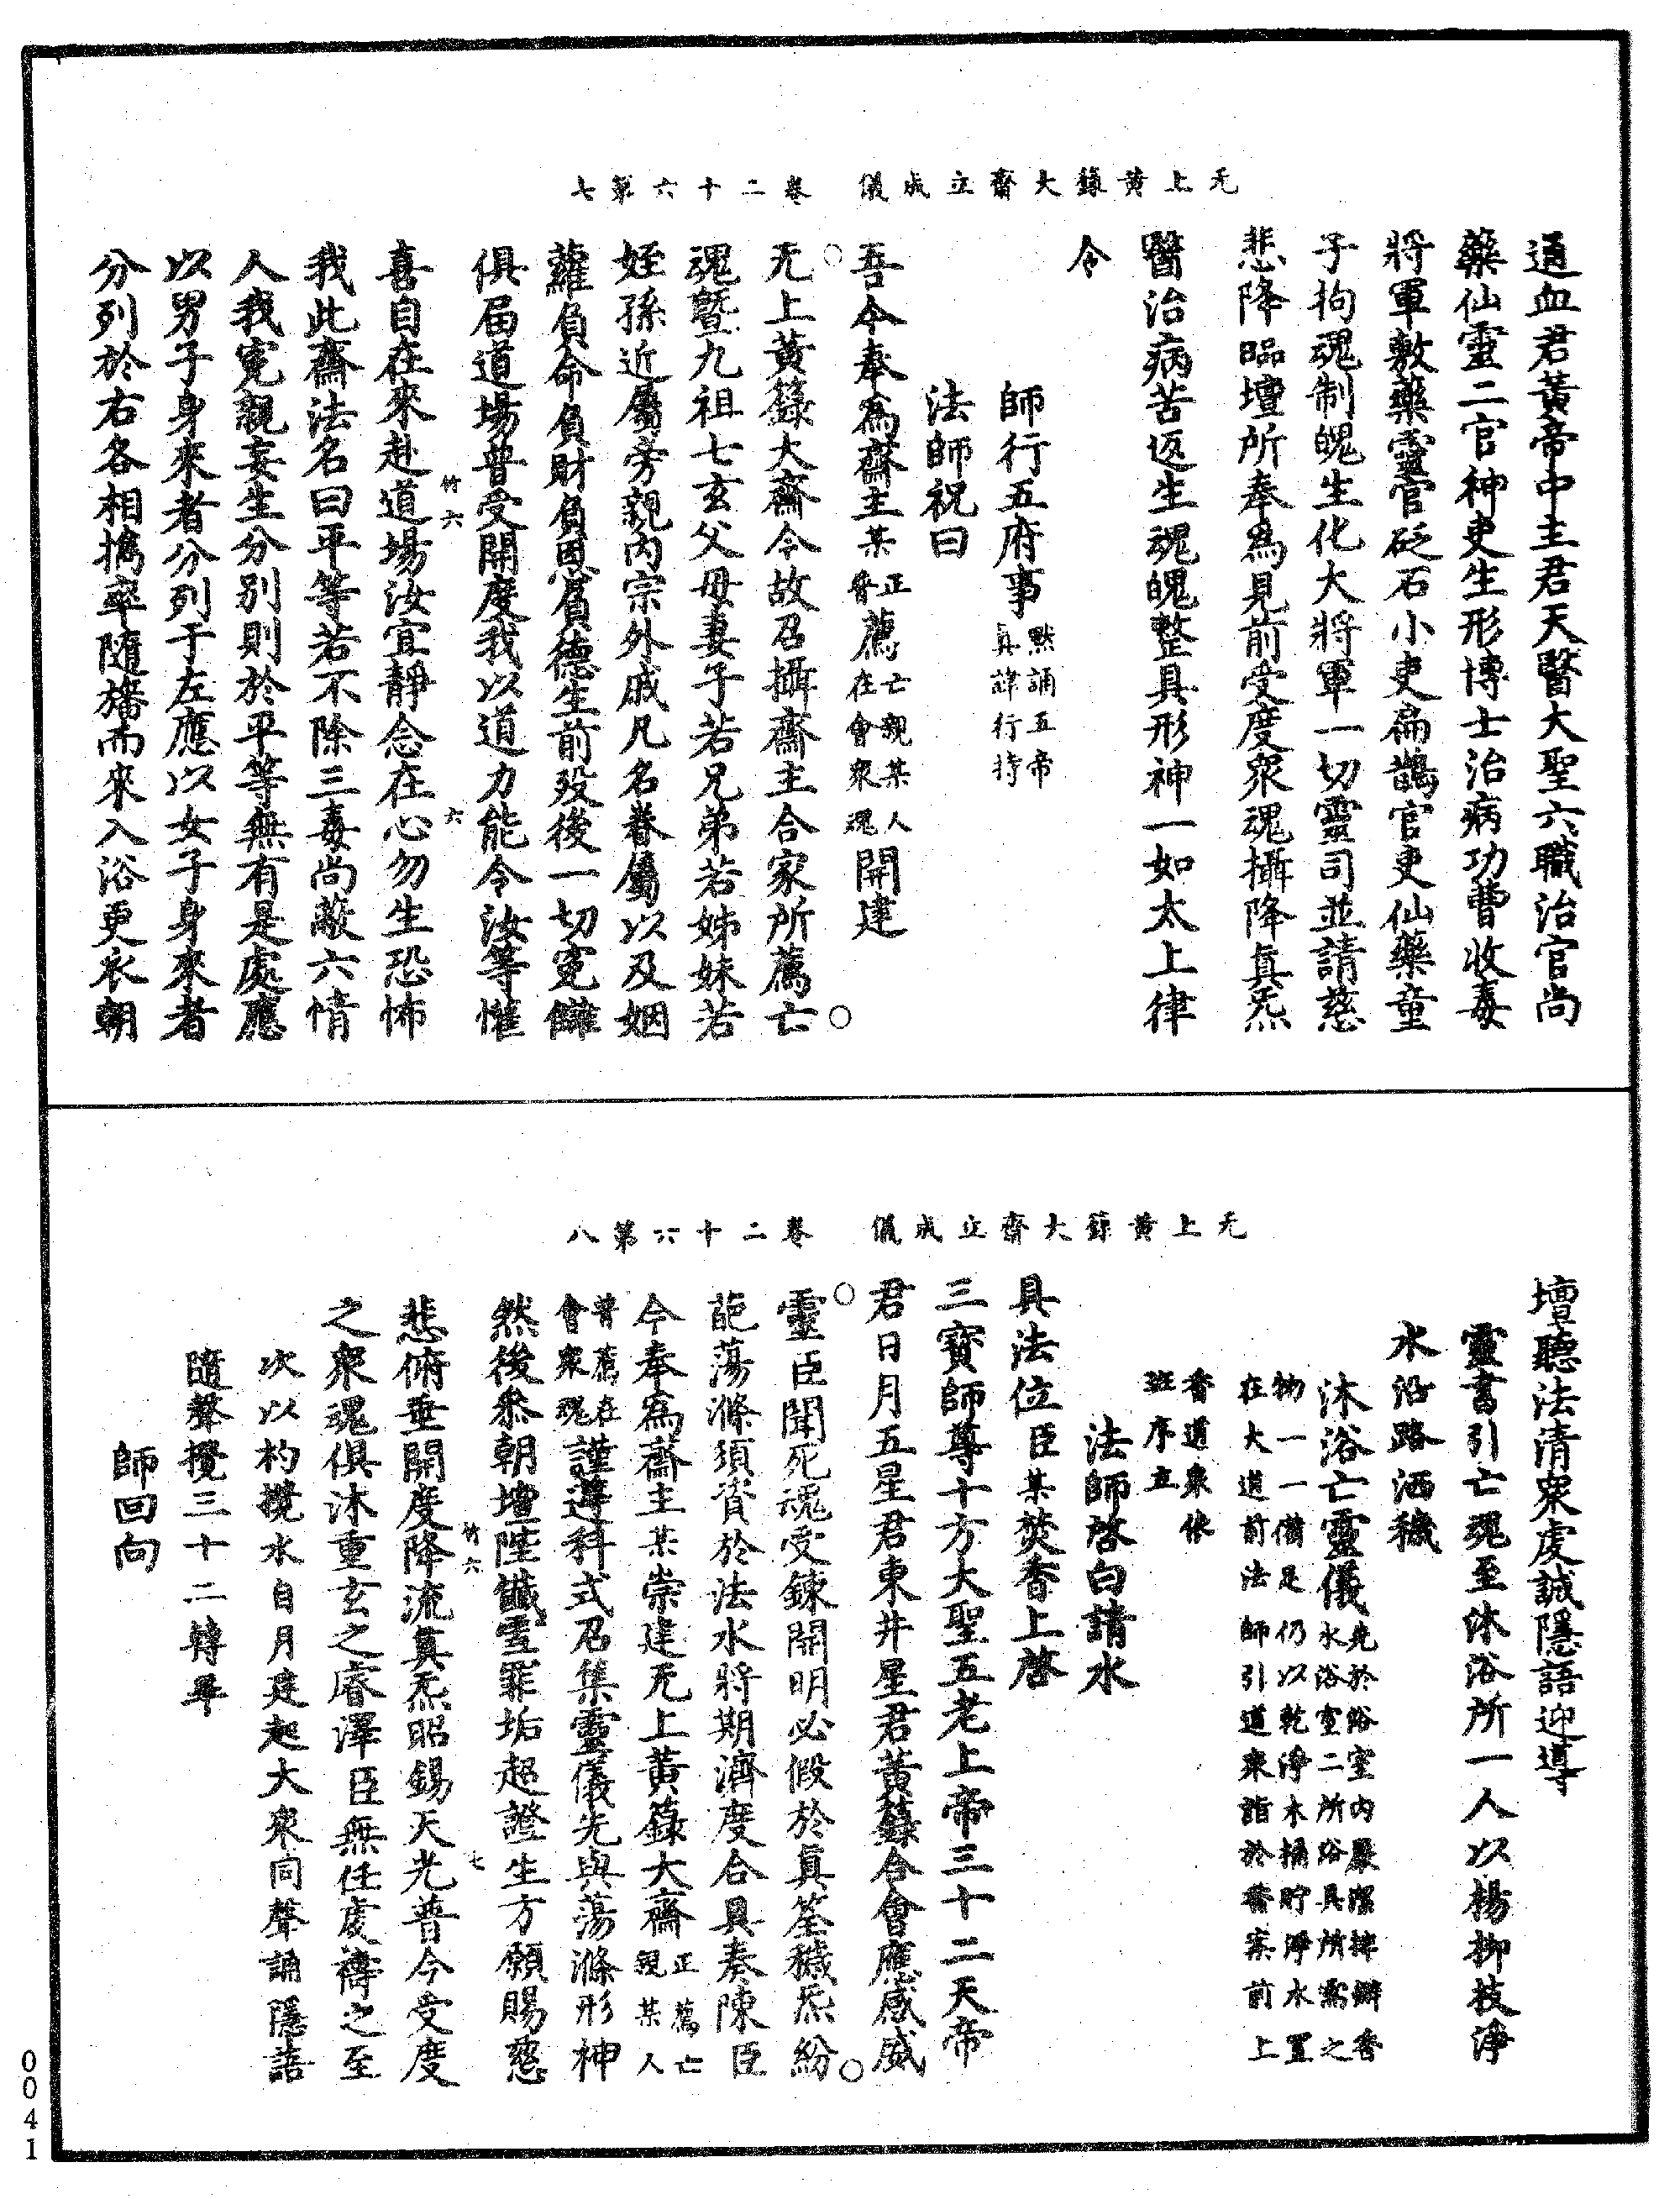 无上黃籙大齋立成儀　卷二十六第七
通血君黃帝中主君天醫大聖六職治官尚
藥仙靈二官神吏生形博士治病功曹收毒
將軍敷藥靈官砭石小吏扁鵲官吏仙藥童
子拘魂制魄生化大將軍一切靈司並請慈
悲降臨壇所奉為見前受度眾魂攝降真炁
醫治病苦返生魂魄整具形神一如太上律
令
師行五府事默誦五帝真諱行持
法師祝曰
吾今奉為齋主某正薦亡親某人普薦在會眾魂開建
无上黃籙大齋今故召攝齋主合家所薦亡
魂暨九祖七玄父母妻子若兄弟若姊妹若
姪孫近屬旁親內宗外戚凡名眷屬以及姻
蘿負命負財負恩負德生前歿後一切冤讎
俱屆道場普受開度我以道力能令汝等懽
喜自在來赴道場汝宜靜念在心勿生恐怖
竹六　六
我此齋法名曰平等若不除三毒尚蔽六情
人我冤親妄生分別則於平等無有是處應
以男子身來者分列于左應以女子身來者
分列於右各相攜率隨旛而來入浴更衣朝
无上黃籙大齋立成儀　卷二十六第八
壇聽法清眾虔誠隱語迎導
靈書引亡魂至沐浴所一人以楊柳枝淨
水沿路洒穢
沐浴亡靈儀先於浴室內嚴潔排辦香水浴室二所浴具所需之
物一一備足仍以乾淨木桶貯淨水置
在大道前法師引道眾詣於香案前上
香道眾依
班序立
法師啓白請水
具法位臣某焚香上啓
三寶師尊十方大聖五老上帝三十二天帝
君日月五星君東井星君黃籙合會應感威
靈臣聞死魂受鍊開明必假於真筌穢炁紛
葩蕩滌須資於法水將期濟度合具奏陳臣
今奉為齋主某崇建无上黃籙大齋正薦亡親某人
普薦在會眾魂謹遵科式召集靈儀先與蕩滌形神
然後叅朝壇陛懺雪罪垢超證生方願賜慈
竹六　七
悲俯垂開度降流真炁昭錫天光普今受度
之眾魂俱沐重玄之睿澤臣無任虔禱之至
次以杓攪水自月建起大眾同聲誦隱語
隨聲攪三十二轉畢
師回向
0041